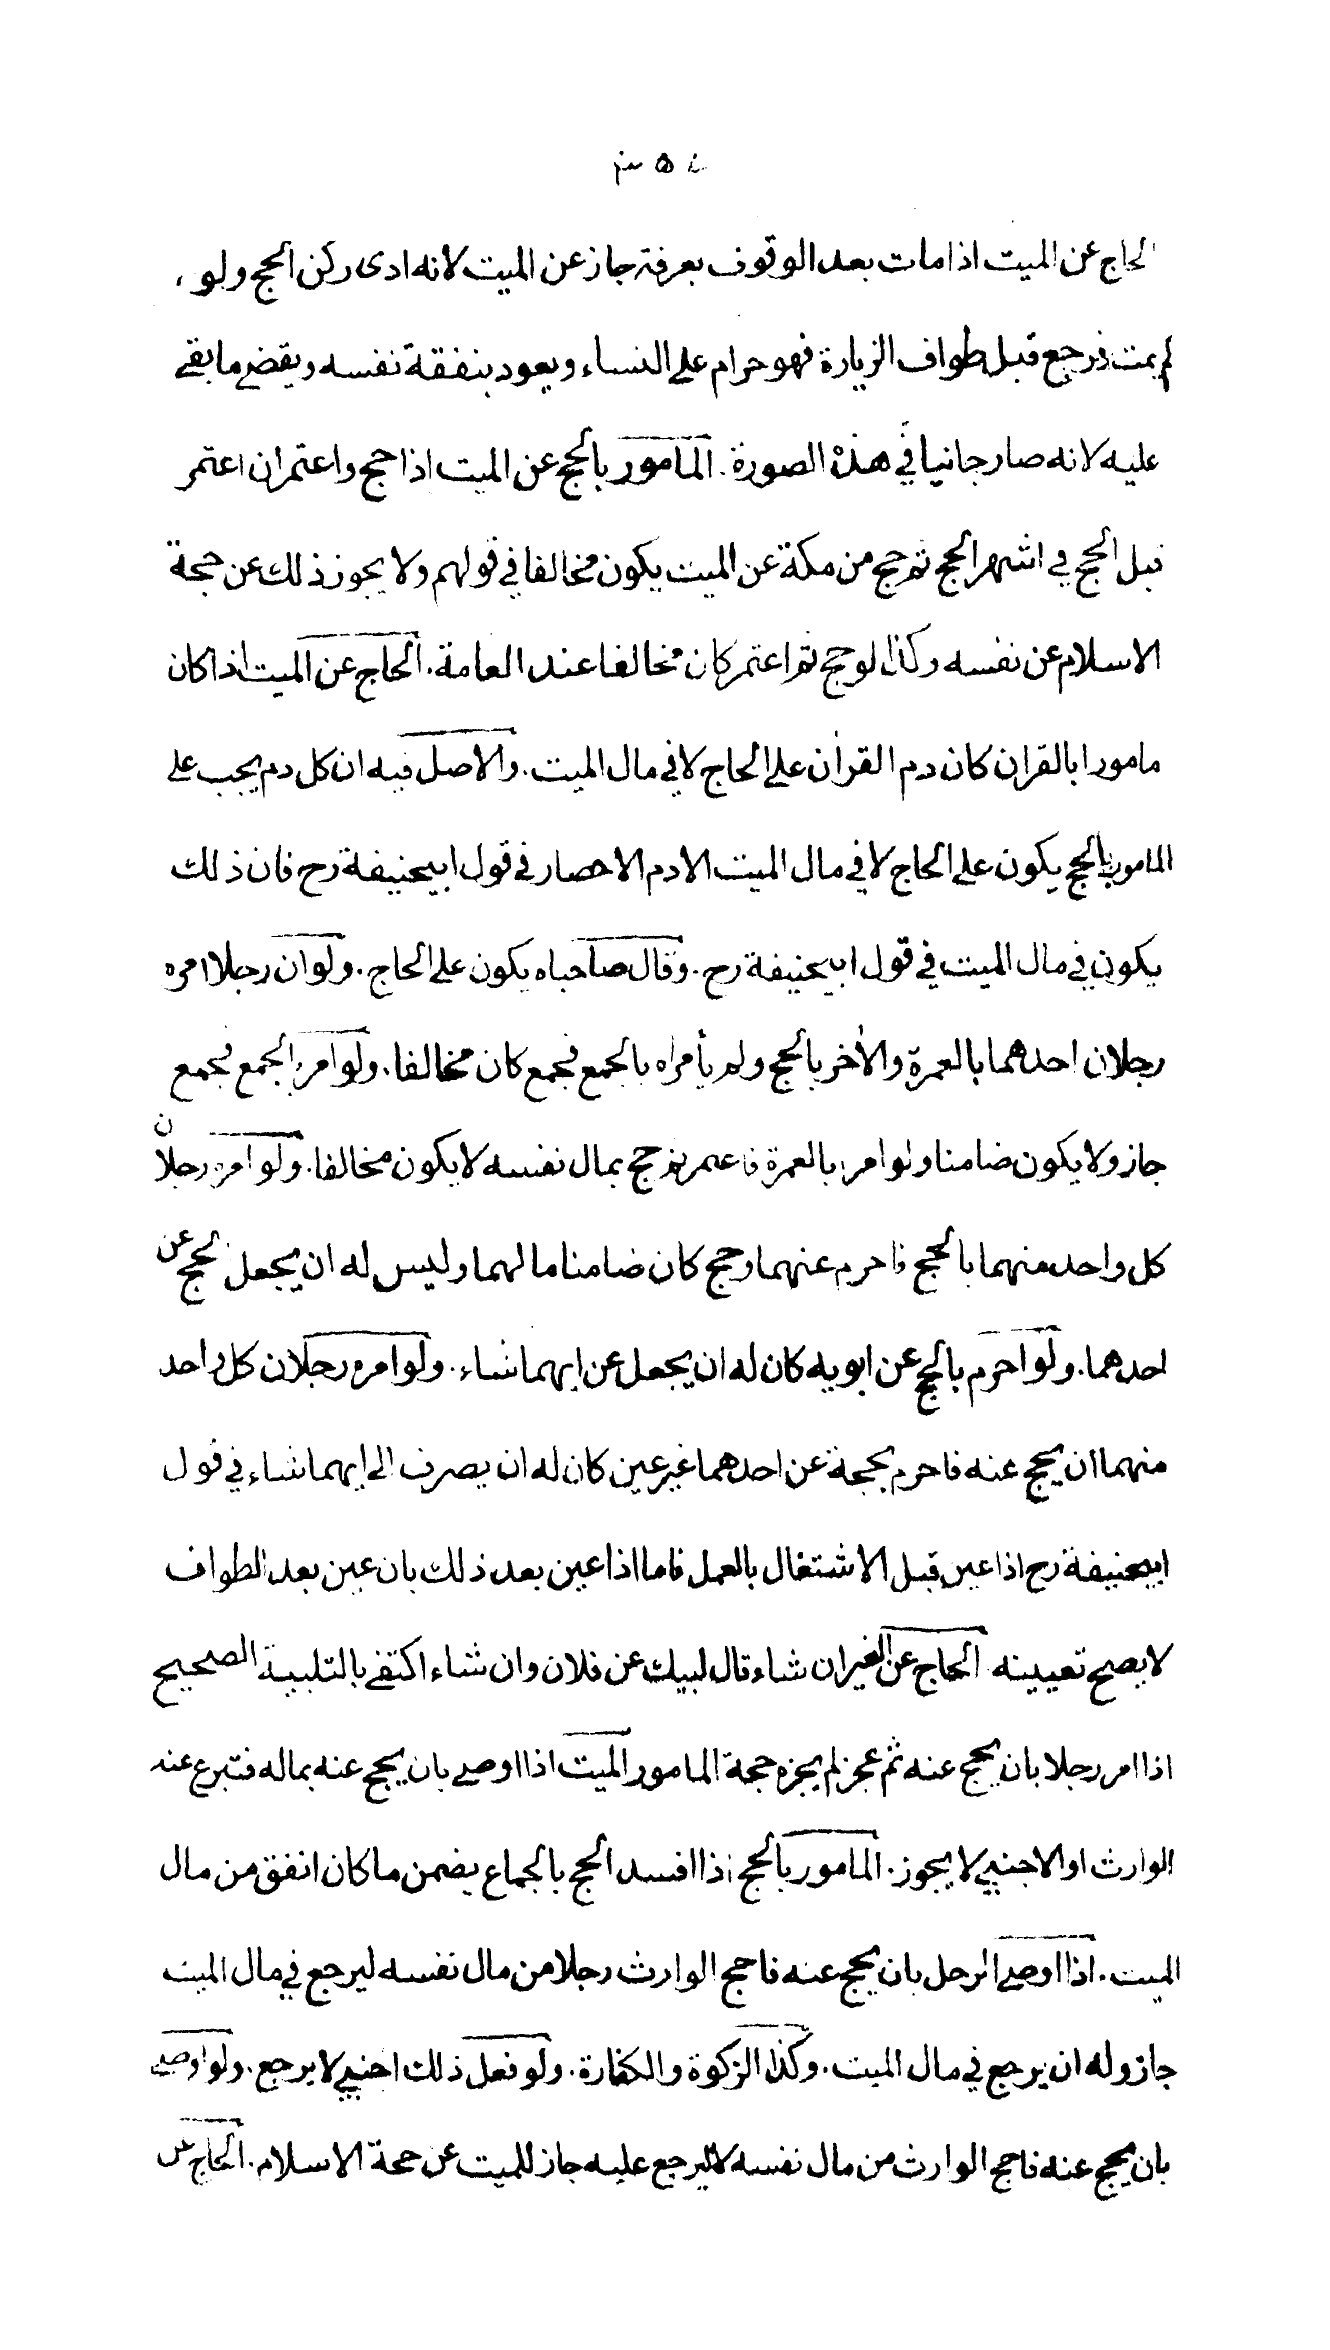 الحاج عن الميت اذا مات بعد الوقوف بعرفة جاز عن الميت لانه ادى ركن الحج ولو
لم يمت فرجع قبل طواف الزيارة فهو حرام على النساء ويعود بنفقة نفسه ويقضي ما بقي
عليه لانه صار جانيا في هذه الصورة. المامور بالحج عن الميت اذا حج واعتمر ان اعتمر
قبل الحج في اشهر الحج ثم حج من مكة عن الميت يكون مخالفا في قولهم ولا يجوز ذلك عن حجة
الاسلام عن نفسه وكذا لو حج ثم اعتمر كان مخالفا عند العامة. الحاج عن الميت اذا كان
مامورا بالقران كان دم القران على الحاج لا في مال الميت. والاصل فيه ان كل دم يجب على
المامور بالحج يكون على الحاج لا في مال الميت الا دم الاحصار في قول ابيحنيفة رح فان ذلك
يكون في مال الميت في قول ابيحنيفة رح. وقال صاحباه يكون على الحاج. ولو ان رجلا امره
رجلان احدهما بالعمرة والأخر بالحج ولم يأمراه بالجمع فجمع كان مخالفا. ولو امراه بالجمع فجمع
جاز ولا يكون ضامنا ولو امر بالعمرة فاعتمر ثم حج بمال نفسه لا يكون مخالفا. ولو امره رجلان
كل واحد منهما بالحج فاحرم عنهما وحج كان ضامنا مالهما وليس له ان يجعل الحج عن
احدهما. ولو احرم بالحج عن ابويه كان له ان يجعل عن ايهما شاء. ولو امره رجلان كل واحد
منهما ان يحج عنه فاحرم بحجة عن احدهما غير عين كان له ان يصرف الى ايهما شاء في قول
ابيحنيفة رح اذا عين قبل الاشتغال بالعمل فاما اذا عين بعد ذلك بان عين بعد الطواف
لا يصح تعيينه الحاج عن الغير ان شاء قال لبيك عن فلان وان شاء اكتفى بالتلبية الصحيح
اذا امر رجلا بان يحج عنه ثم عجز لم يجزه حجة المامور الميت اذا اوصى بان يحج عنه بماله فتبرع عنه
الوارث او الاجنبي لا يجوز. المامور بالحج اذا افسد الحج بالجماع يضمن ما كان انفق من مال
الميت. اذا اوصى الرجل بان يحج عنه فاحج الوارث رجلا من مال نفسه ليرجع في مال الميت
جاز وله ان يرجع في مال الميت. وكذا الزكوة والكفارة. ولو فعل ذلك اجنبي لا يرجع. ولو اوصى
بان يحج عنه فاحج الوارث من مال نفسه لا ليرجع عليه جاز للميت عن حجة الاسلام. الحاج عن